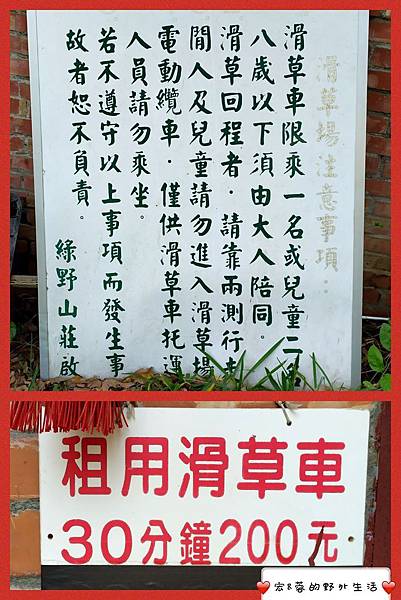 滑草場注意事項：
滑草車限乘一名或兒童二名
八歲以下須由大人陪同。
滑草回程者．請靠兩測行走
閒人及兒童請勿進入滑草場
電動纜車．僅供滑草車托運
人員請勿乘坐。
若不遵守以上事項而發生事
故者恕不負責。
綠野山莊啟
租用滑草車
30分鐘200元
宏&蓉的野外生活